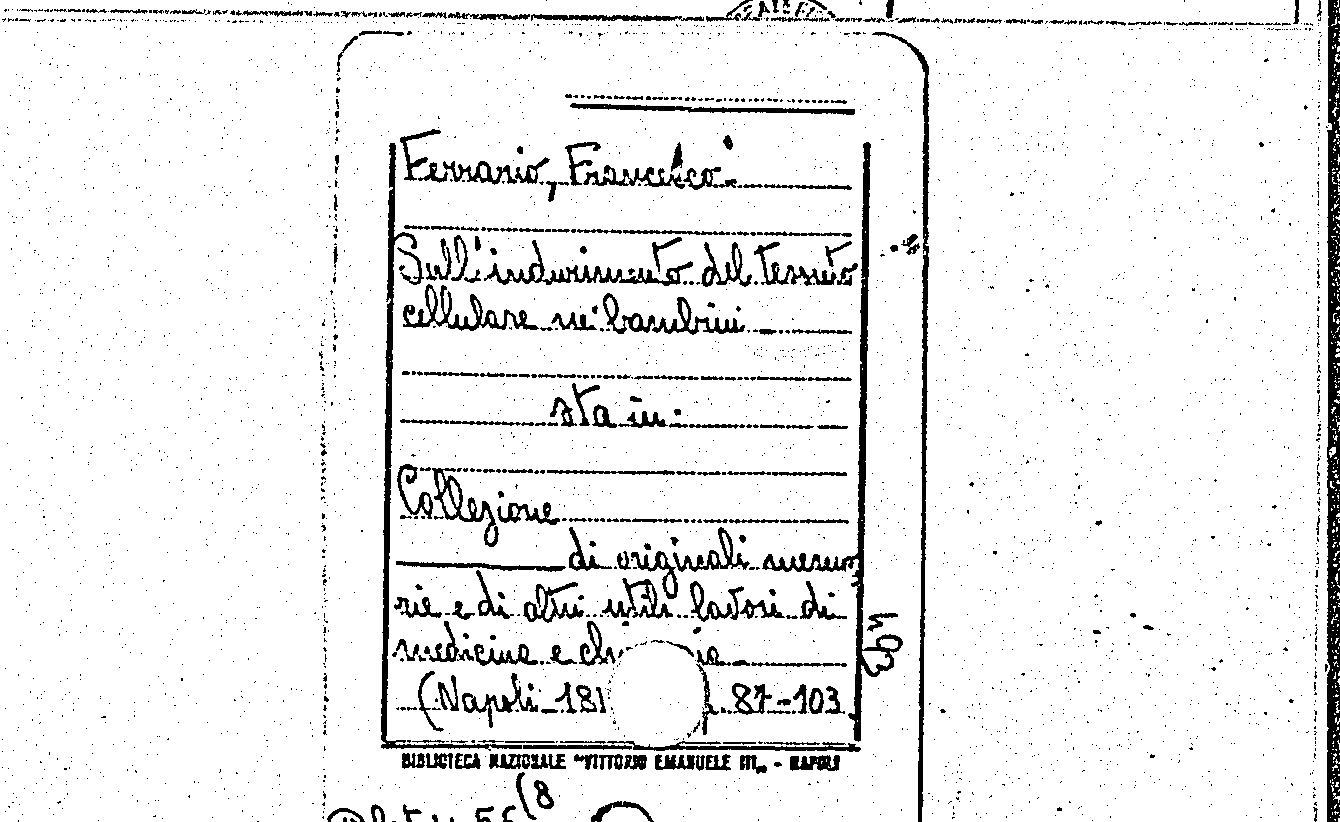 Ferrario, Francesco -
Sull'indurimento del tessuto
cellulare ne' bambini -
sta in:
Collezione
di originali memo
rie e di altri utili lavori di
medicina e
(Napoli - 181 87-103
493
BIBLIOTECA NAZIONALE "VITTORIO EMANUELE III„ - NAPOLI
(8